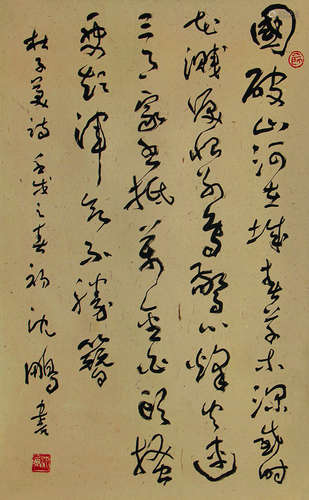 國破山河在城春草木深感時
花濺淚恨別鳥驚心烽火連
三月家書抵萬金白頭搔
更短渾欲不勝簪
杜子美詩 壬戌之春初 沈鵬書